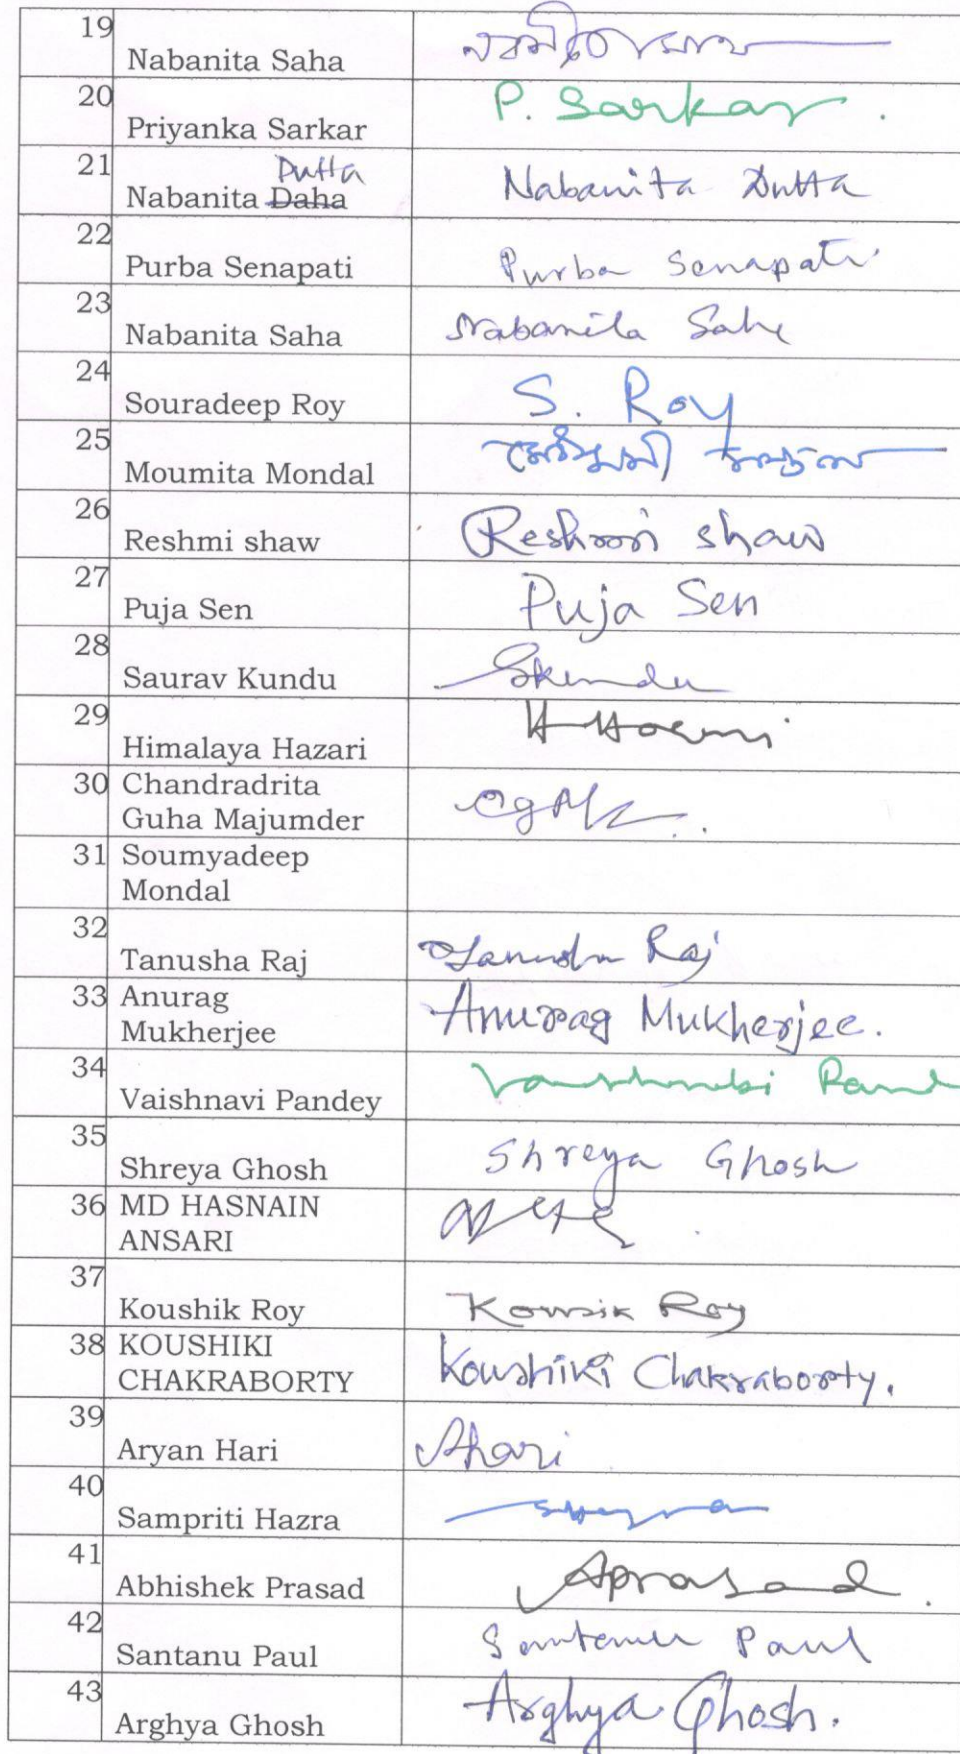 19 Nabanita Saha নবনীতা সাহা
20 Priyanka Sarkar P. Sarkar.
Dutta
21 Nabanita Daha Nabanita Dutta
22 Purba Senapati Purba Senapati
23 Nabanita Saha Nabanita Saha
24 Souradeep Roy S. Roy
25 Moumita Mondal
26 Reshmi shaw Reshmi shaw
27 Puja Sen Puja Sen
28 Saurav Kundu Skundu
29 Himalaya Hazari
30 Chandradrita
Guha Majumder
31 Soumyadeep
Mondal
32 Tanusha Raj Tanusha Raj
33 Anurag
Mukherjee Anurag Mukherjee.
34 Vaishnavi Pandey
35 Shreya Ghosh Shreya Ghosh
36 MD HASNAIN
ANSARI
37 Koushik Roy Kousik Roy
38 KOUSHIKI
CHAKRABORTY Koushiki Chakraborty.
39 Aryan Hari Ahari
40 Sampriti Hazra
41 Abhishek Prasad Aprasad.
42 Santanu Paul Santanu Paul
43 Arghya Ghosh Arghya Ghosh.